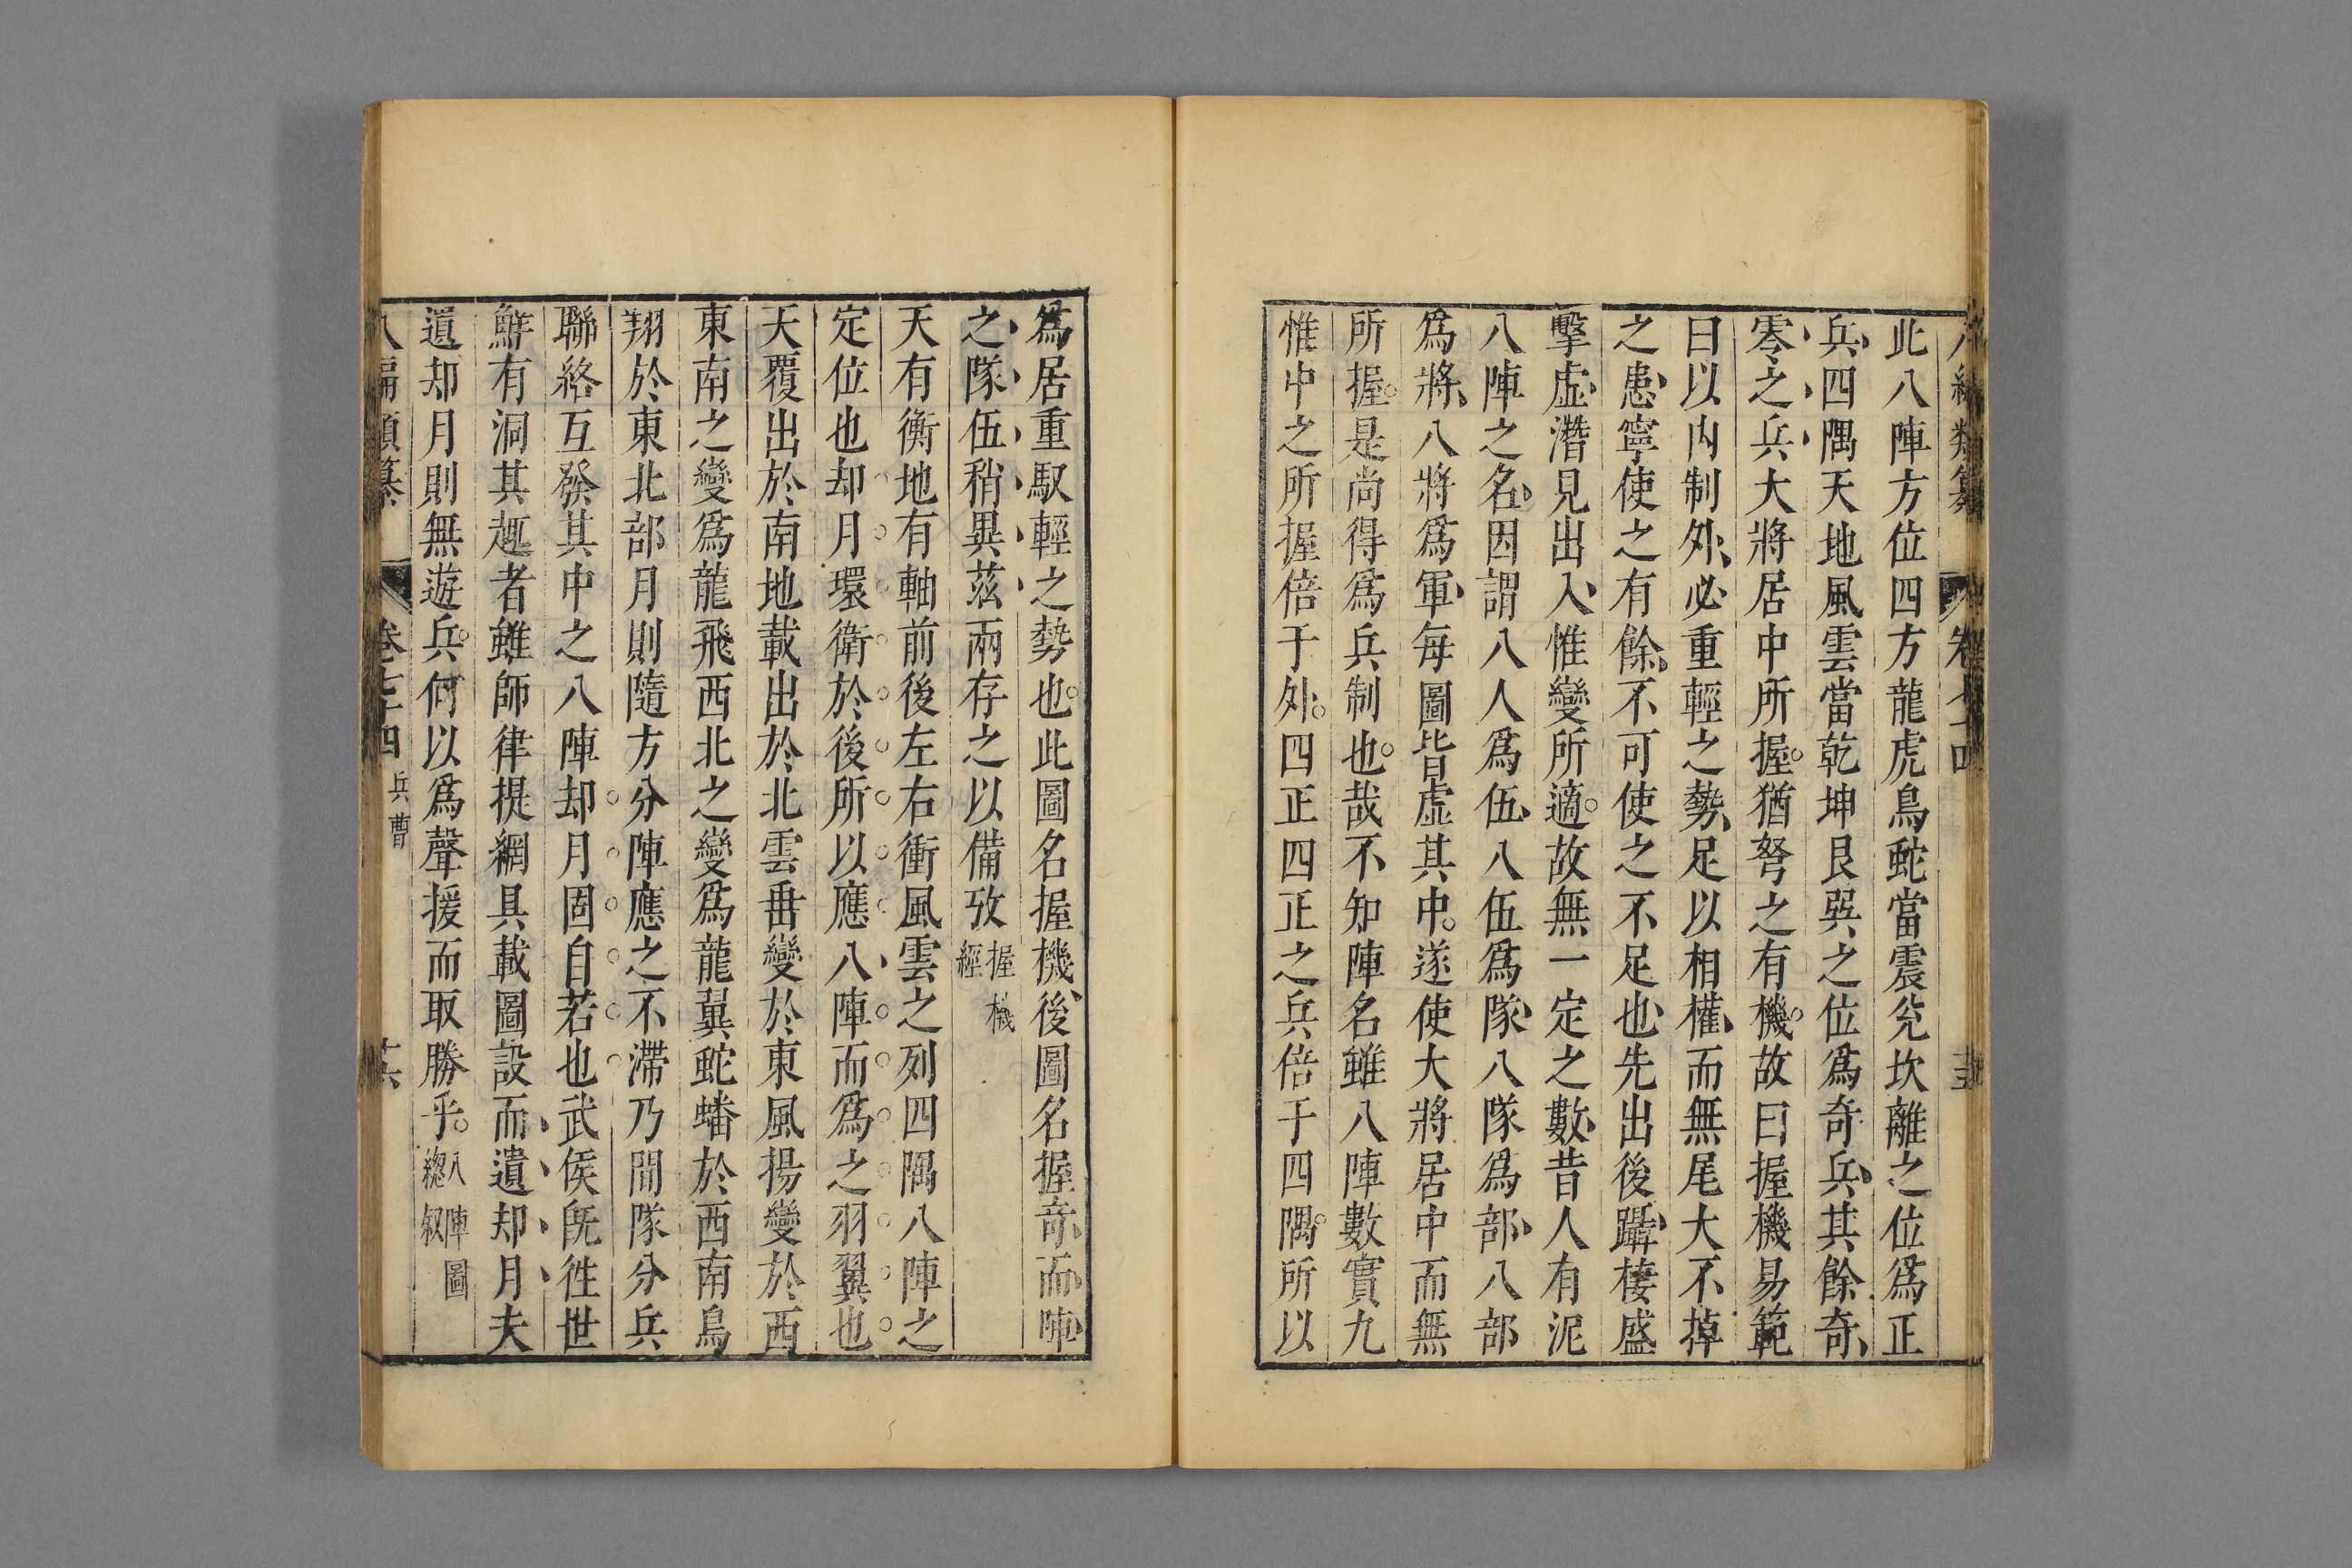 此八陣方位四方龍虎鳥蛇當震兊坎離之位爲正
兵四隅天地風雲當乾坤艮巽之位爲奇兵其餘奇
零之兵大將居中所握猶弩之有機故曰握機易範
曰以內制外必重輕之勢足以相權而無尾大不掉
之患寧使之有餘不可使之不足也先出後躡棲盛
擊虛潛見出入惟變所適故無一定之數昔人有泥
八陣之名因謂八人爲伍八伍爲隊八隊爲部八部
爲將八將爲軍每圖皆虛其中遂使大將居中而無
所握是尚得爲兵制也哉不知陣名雖八陣數實九
惟中之所握倍于外四正四正之兵倍于四隅所以
爲居重馭輕之勢也此圖名握機後圖名握奇而陣
之隊伍稍異茲兩存之以備攷 握機經
天有衡地有軸前後左右衝風雲之列四隅八陣之
定位也却月環衛於後所以應八陣而爲之羽翼也
天覆出於南地載出於北雲垂變於東風揚變於西
東南之變爲龍飛西北之變爲龍翼蛇蟠於西南鳥
翔於東北部月則隨方分陣應之不滯乃間隊分兵
聯絡互發其中之八陣却月固自若也武侯既徃世
鮮有洞其趣者雖師律提綱具載圖設而遺却月夫
遺却月則無遊兵何以爲聲援而取勝乎 八陣圖總叙
八編類纂 卷七十四 兵曹 十六